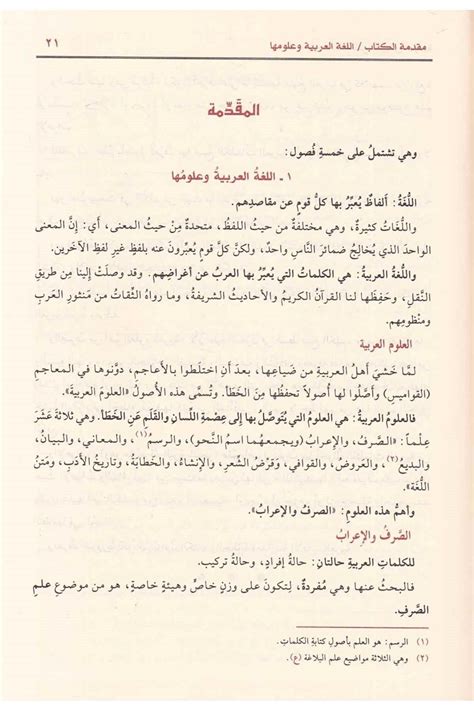 مقدمة الكتاب / اللغة العربية وعلومها ٢١
المقَدِّمة
وهي تشتملُ على خمسةِ فُصول:
١ - اللغةُ العربيةُ وعلومُها
اللُّغةُ: ألفاظٌ يُعبِّرُ بها كلُّ قومٍ عن مقاصدِهم.
واللُّغاتُ كثيرةٌ، وهي مختلفةٌ من حيثُ اللفظُ، متحدةٌ مِنْ حيثُ المعنى، أي: إنَّ المعنى
الواحدَ الذي يُخالِجُ ضمائرَ النَّاسِ واحدٌ، ولكنَّ كلَّ قومٍ يُعبِّرونَ عنه بلفظٍ غيرِ لفظِ الآخرين.
واللُّغةُ العربيةُ: هي الكلماتُ التي يُعبِّرُ بها العربُ عن أغراضِهم. وقد وصلَتْ إلينا مِن طريقِ
النَّقلِ، وحَفِظَها لنا القرآنُ الكريمُ والأحاديثُ الشريفةُ، وما رواهُ الثِّقاتُ من مَنثورِ العَربِ
ومنظومِهم.
العلوم العربية
لمَّا خَشيَ أهلُ العربيةِ من ضَياعِها، بعدَ أنِ اختلَطوا بالأعاجمِ، دوَّنوها في المعاجمِ
(القواميسِ) وأصَّلوا لها أُصولًا تحفظُها مِنَ الخَطأ. وتُسمَّى هذه الأُصولُ «العلومَ العربيةَ».
فالعلومُ العربيةُ: هي العلومُ التي يُتوَصَّلُ بها إلى عِصْمةِ اللِّسانِ والقَلَمِ عنِ الخَطَأ. وهي ثلاثةَ عَشَرَ
عِلْمًا: «الصَّرفُ، والإعرابُ (ويجمعُهما اسمُ النَّحو)، والرسمُ(١)، والمعاني، والبيانُ،
والبديعُ(٢)، والعَروضُ، والقوافي، وقَرْضُ الشِّعرِ، والإنشاءُ، والخَطابَةُ، وتاريخُ الأدَبِ، ومَتْنُ
اللُّغةِ».
وأهمُّ هذه العلومِ: «الصرفُ والإعرابُ».
الصَّرفُ والإعرابُ
للكلماتِ العربيةِ حالتان: حالةُ إفرادٍ، وحالةُ تركيب.
فالبحثُ عنها وهي مُفردةٌ، لِتكونَ على وزنٍ خاصٍّ وهيئةٍ خاصةٍ، هو من موضوعِ علمِ
الصَّرفِ.
(١) الرسم: هو العلم بأصولِ كتابةِ الكلماتِ.
(٢) وهي الثلاثة مواضيع علم البلاغة (ع).